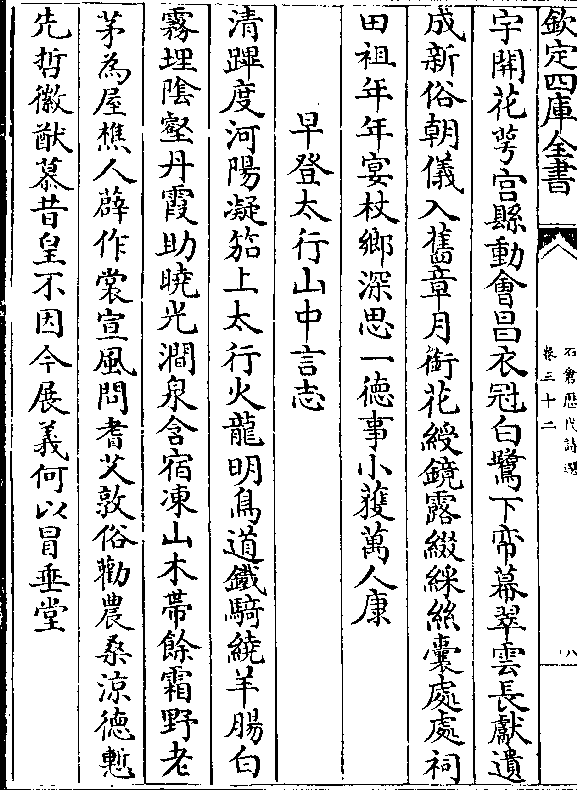 欽定四庫全書
石倉歷代詩選
卷三十二
八
宇開花萼宫縣動會昌衣冠白鷺下帟幕翠雲長獻遺
成新俗朝儀入舊章月銜花綬鏡露綴綵絲囊處處祠
田祖年年宴杖鄉深思一德事小獲萬人康
早登太行山中言志
清蹕度河陽凝笳上太行火龍明鳥道鐵騎繞羊腸白
霧埋陰壑丹霞助曉光澗泉含宿凍山木帶餘霜野老
茅為屋樵人薜作裳宣風問耆艾敦俗勸農桑涼德慙
先哲徽猷慕昔皇不因今展義何以冒垂堂